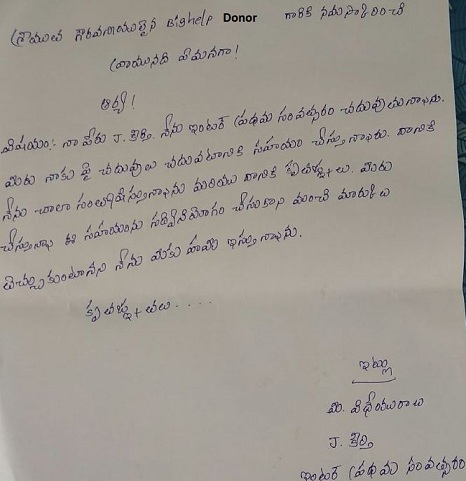 శ్రీయుత గౌరవనీయులైన Bighelp Donor గారికి నమస్కరించి
వ్రాయునది ఏమనగా!
ఆర్య!
విషయం:- నా పేరు J. కీర్తి. నేను ఇంటర్ ప్రథమ సంవత్సరం చదువుతున్నాను.
మీరు నాకు పై చదువులు చదవటానికి సహాయం చేస్తున్నారు. దానికి
నేను చాలా సంతోషిస్తున్నాను మరియు దానికి కృతజ్ఞతలు. మీరు
చేస్తున్న ఈ సహాయంను సద్వినియోగం చేసుకొని మంచి మార్కులు
తెచ్చుకుంటానని నేను మీకు హామీ ఇస్తున్నాను.
కృతజ్ఞతలు....
ఇట్లు
మీ విధేయురాలు
J. కీర్తి
ఇంటర్ ప్రథమ సంవత్సరం